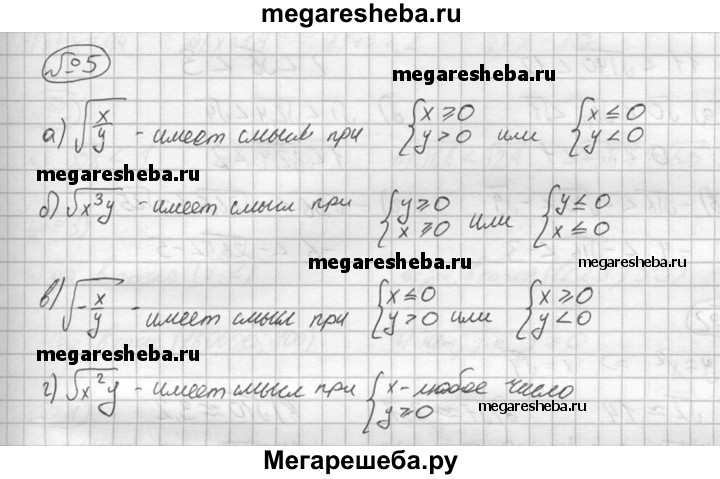 megaresheba.ru
№5
megaresheba.ru
а) √x/y - имеет смысл при { x ≥ 0 y > 0 или { x ≤ 0 y < 0
megaresheba.ru
б) √x³y - имеет смысл при { y ≥ 0 x ≥ 0 или { y ≤ 0 x ≤ 0
megaresheba.ru megaresheba.ru
в) √-x/y - имеет смысл при { x ≤ 0 y > 0 или { x ≥ 0 y < 0
megaresheba.ru
г) √x²y - имеет смысл при { x - любое число y ≥ 0
megaresheba.ru
Мегарешеба.ру